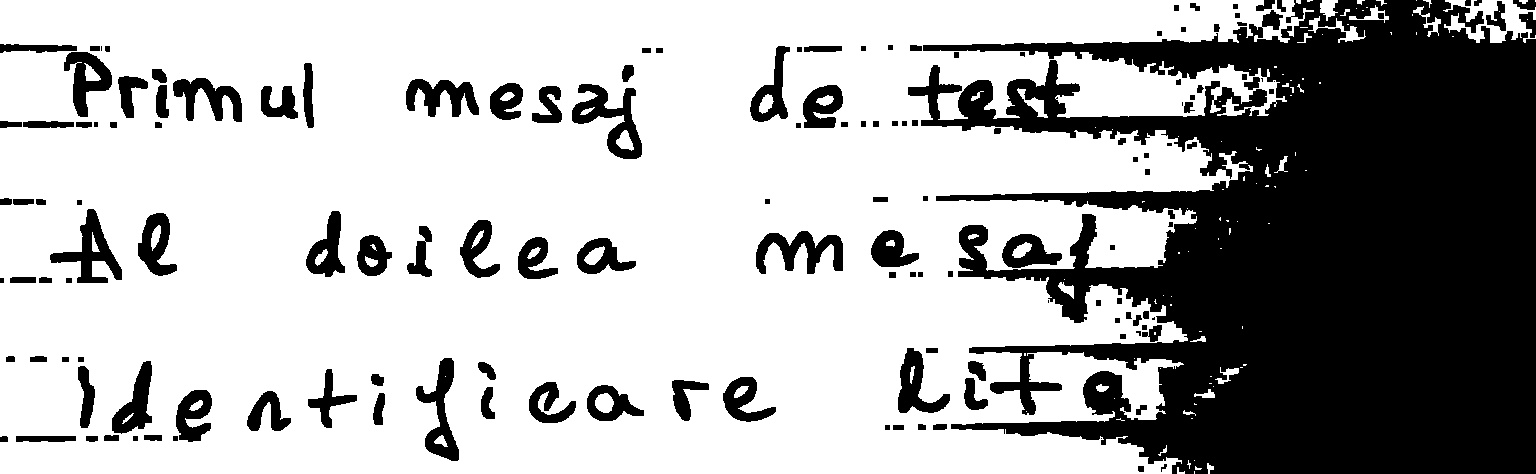 Primul mesaj de test
Al doilea mesaj
Identificare